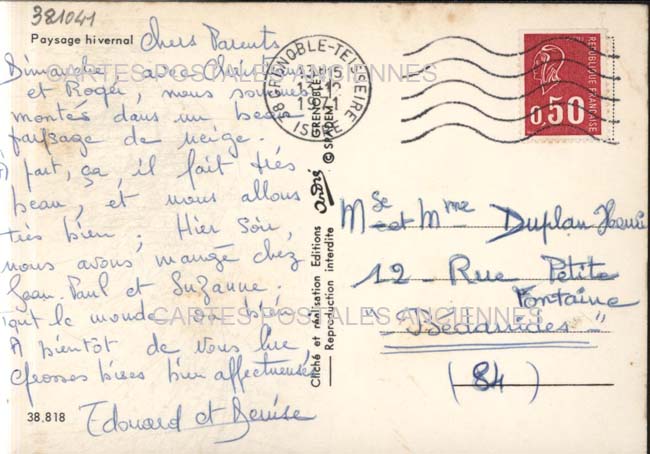 381041
Paysage hivernal
Chers Parents
Dimanche avec Christiane
et Roger, nous sommes
montés dans un beau
paysage de neige.
A part, ça, il fait très
beau, et nous allons
très bien. Hier Soir,
nous avons mangé chez
Jean-Paul et Suzanne.
tout le monde va bien
A bientôt de vous lire
Grosses bises bien affectueuses
Edouard et Denise
38.818
CARTES POSTALES ANCIENNES
CARTES POSTALES ANCIENNES
38 GRENOBLE-TEISSEIRE
1971
ISERE
GRENOBLE
© SPADEM
André
Cliché et réalisation Editions
Reproduction interdite
REPUBLIQUE FRANÇAISE
0,50
et Mme Duplan Henri
12 - Rue Petite
Fontaine
"Bédarrides"
(84)